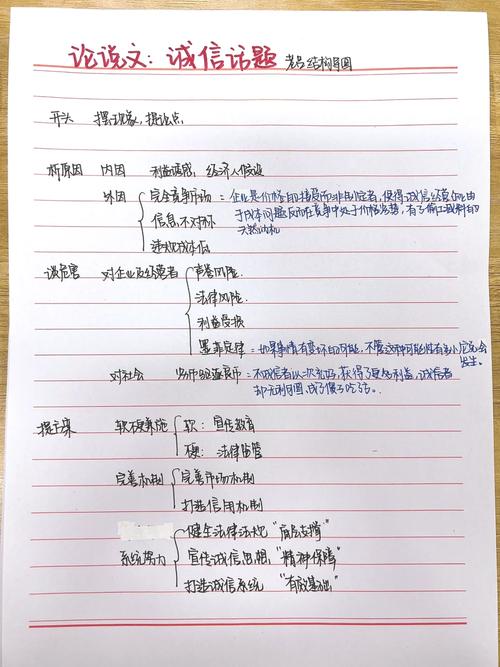 论说文：诚信话题 老吕结构导图
开头 摆现象，提论点
析原因 内因 利益诱惑，经济人假设
外因 完全竞争市场：企业是价格的接受而非制定者，使得诚信经营企业由
于成本问题反而在竞争中处于价格劣势，有了偷工减料的
天然动机
信息不对称
违规成本低
谈危害 对企业及经营者 声誉风险
法律风险
利益受损
墨菲定律：如果事情有变坏的可能，不管这种可能性有多小，它总会
发生。
对社会 劣币驱逐良币：不诚信者以次充好，获得了更多利益，诚信者
却无利可图，成了傻子吃亏。
提方案 软硬兼施 软：宣传教育
硬：法律监管
完善机制 完善市场机制
打造信用机制
系统努力 健全法律法规 “底层支撑”
宣传诚信思想 “精神保障”
打造诚信系统 “有效基础”